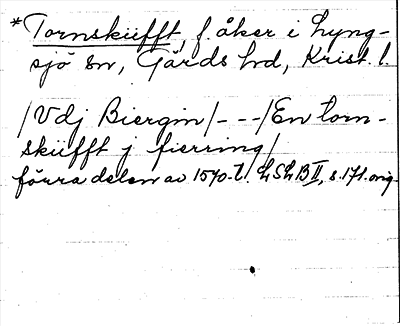 *Tornskiifft, f. åker i Lyng-
sjö sn, Gärds hd, Krist. l.
/Vdj Biergin/ - - - /En torn-
skiifft j fierring/
förra delen av 1570-t. LSLBII, s. 171. orig.